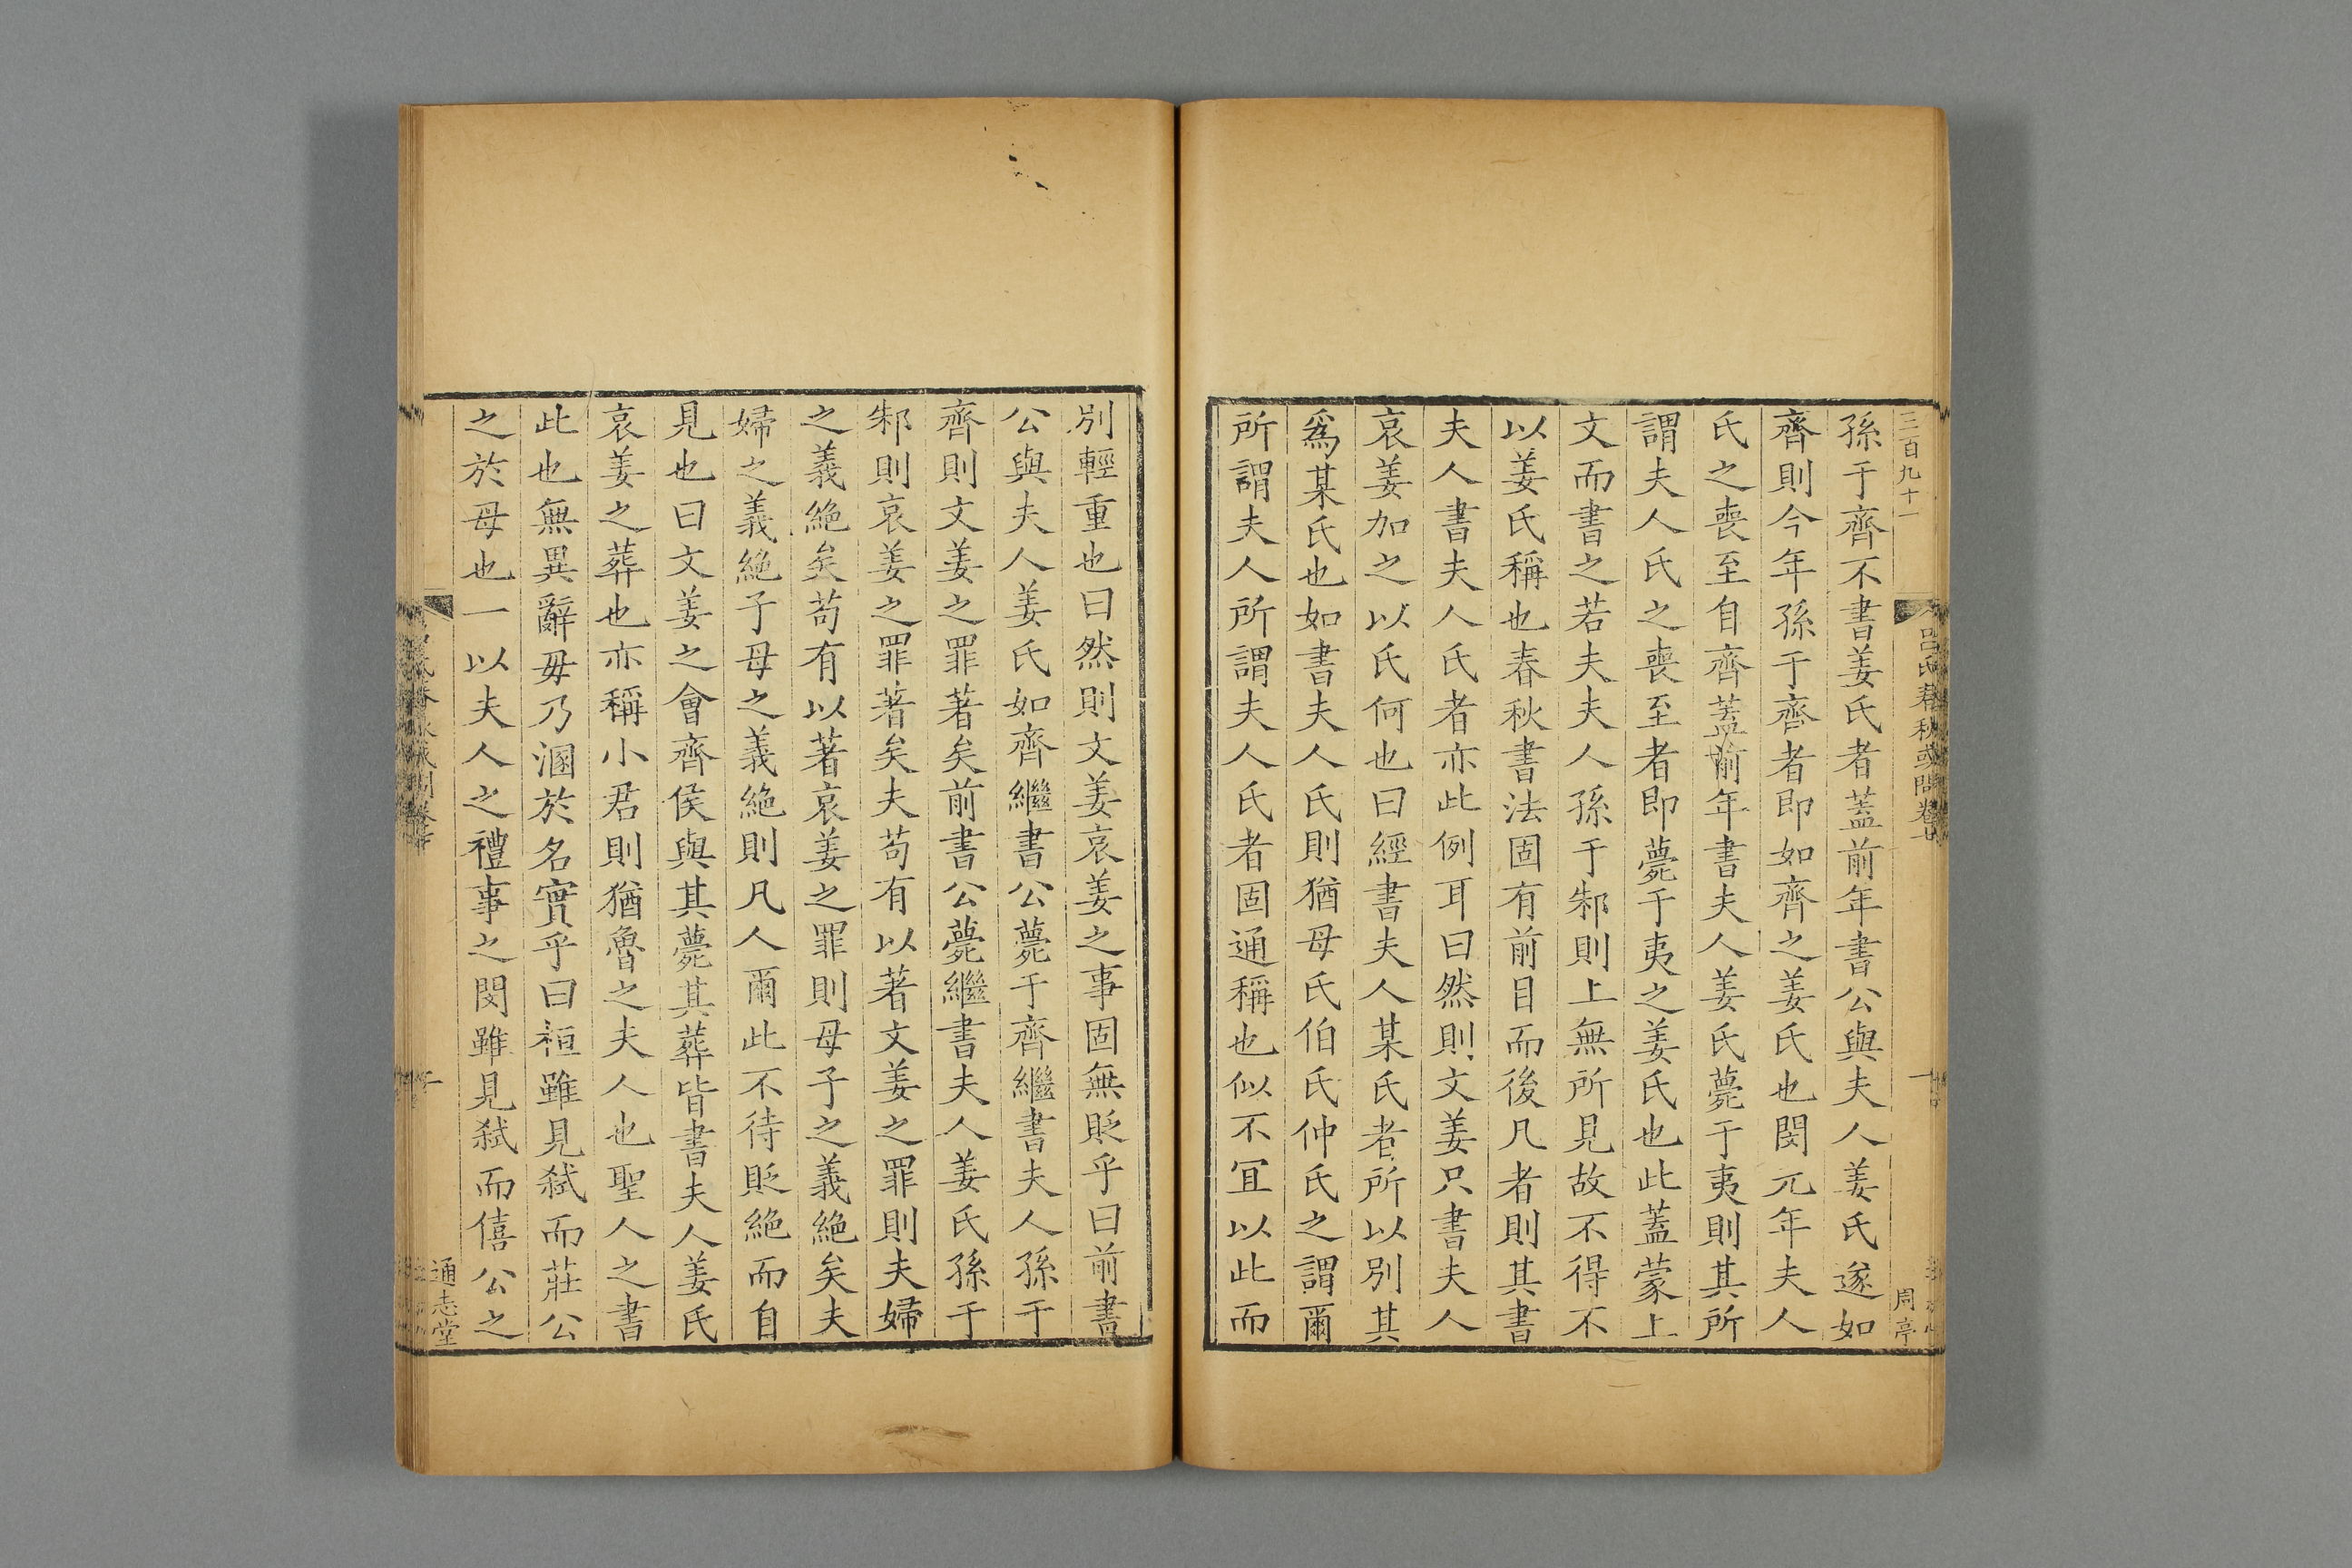 三百九十一
呂氏春秋或問卷
周亭
孫于齊不書姜氏者蓋前年書公與夫人姜氏遂如
齊則今年孫于齊者即如齊之姜氏也閔元年夫人
氏之喪至自齊蓋前年書夫人姜氏薨于夷則其所
謂夫人氏之喪至者即薨于夷之姜氏也此蓋蒙上
文而書之若夫夫人孫于邾則上無所見故不得不
以姜氏稱也春秋書法固有前目而後凡者則其書
夫人書夫人氏者亦此例耳曰然則文姜只書夫人
哀姜加之以氏何也曰經書夫人某氏者所以別其
爲某氏也如書夫人氏則猶母氏伯氏仲氏之謂爾
所謂夫人所謂夫人氏者固通稱也似不冝以此而
別輕重也曰然則文姜哀姜之事固無貶乎曰前書
公與夫人姜氏如齊繼書公薨于齊繼書夫人孫于
齊則文姜之罪著矣前書公薨繼書夫人姜氏孫于
邾則哀姜之罪著矣夫苟有以著文姜之罪則夫婦
之義絶矣苟有以著哀姜之罪則母子之義絶矣夫
婦之義絶子母之義絶則凡人爾此不待貶絶而自
見也曰文姜之會齊侯與其薨其葬皆書夫人姜氏
哀姜之葬也亦稱小君則猶魯之夫人也聖人之書
此也無異辭毋乃溷於名實乎曰桓雖見弑而莊公
之於母也一以夫人之禮事之閔雖見弑而僖公之
通志堂